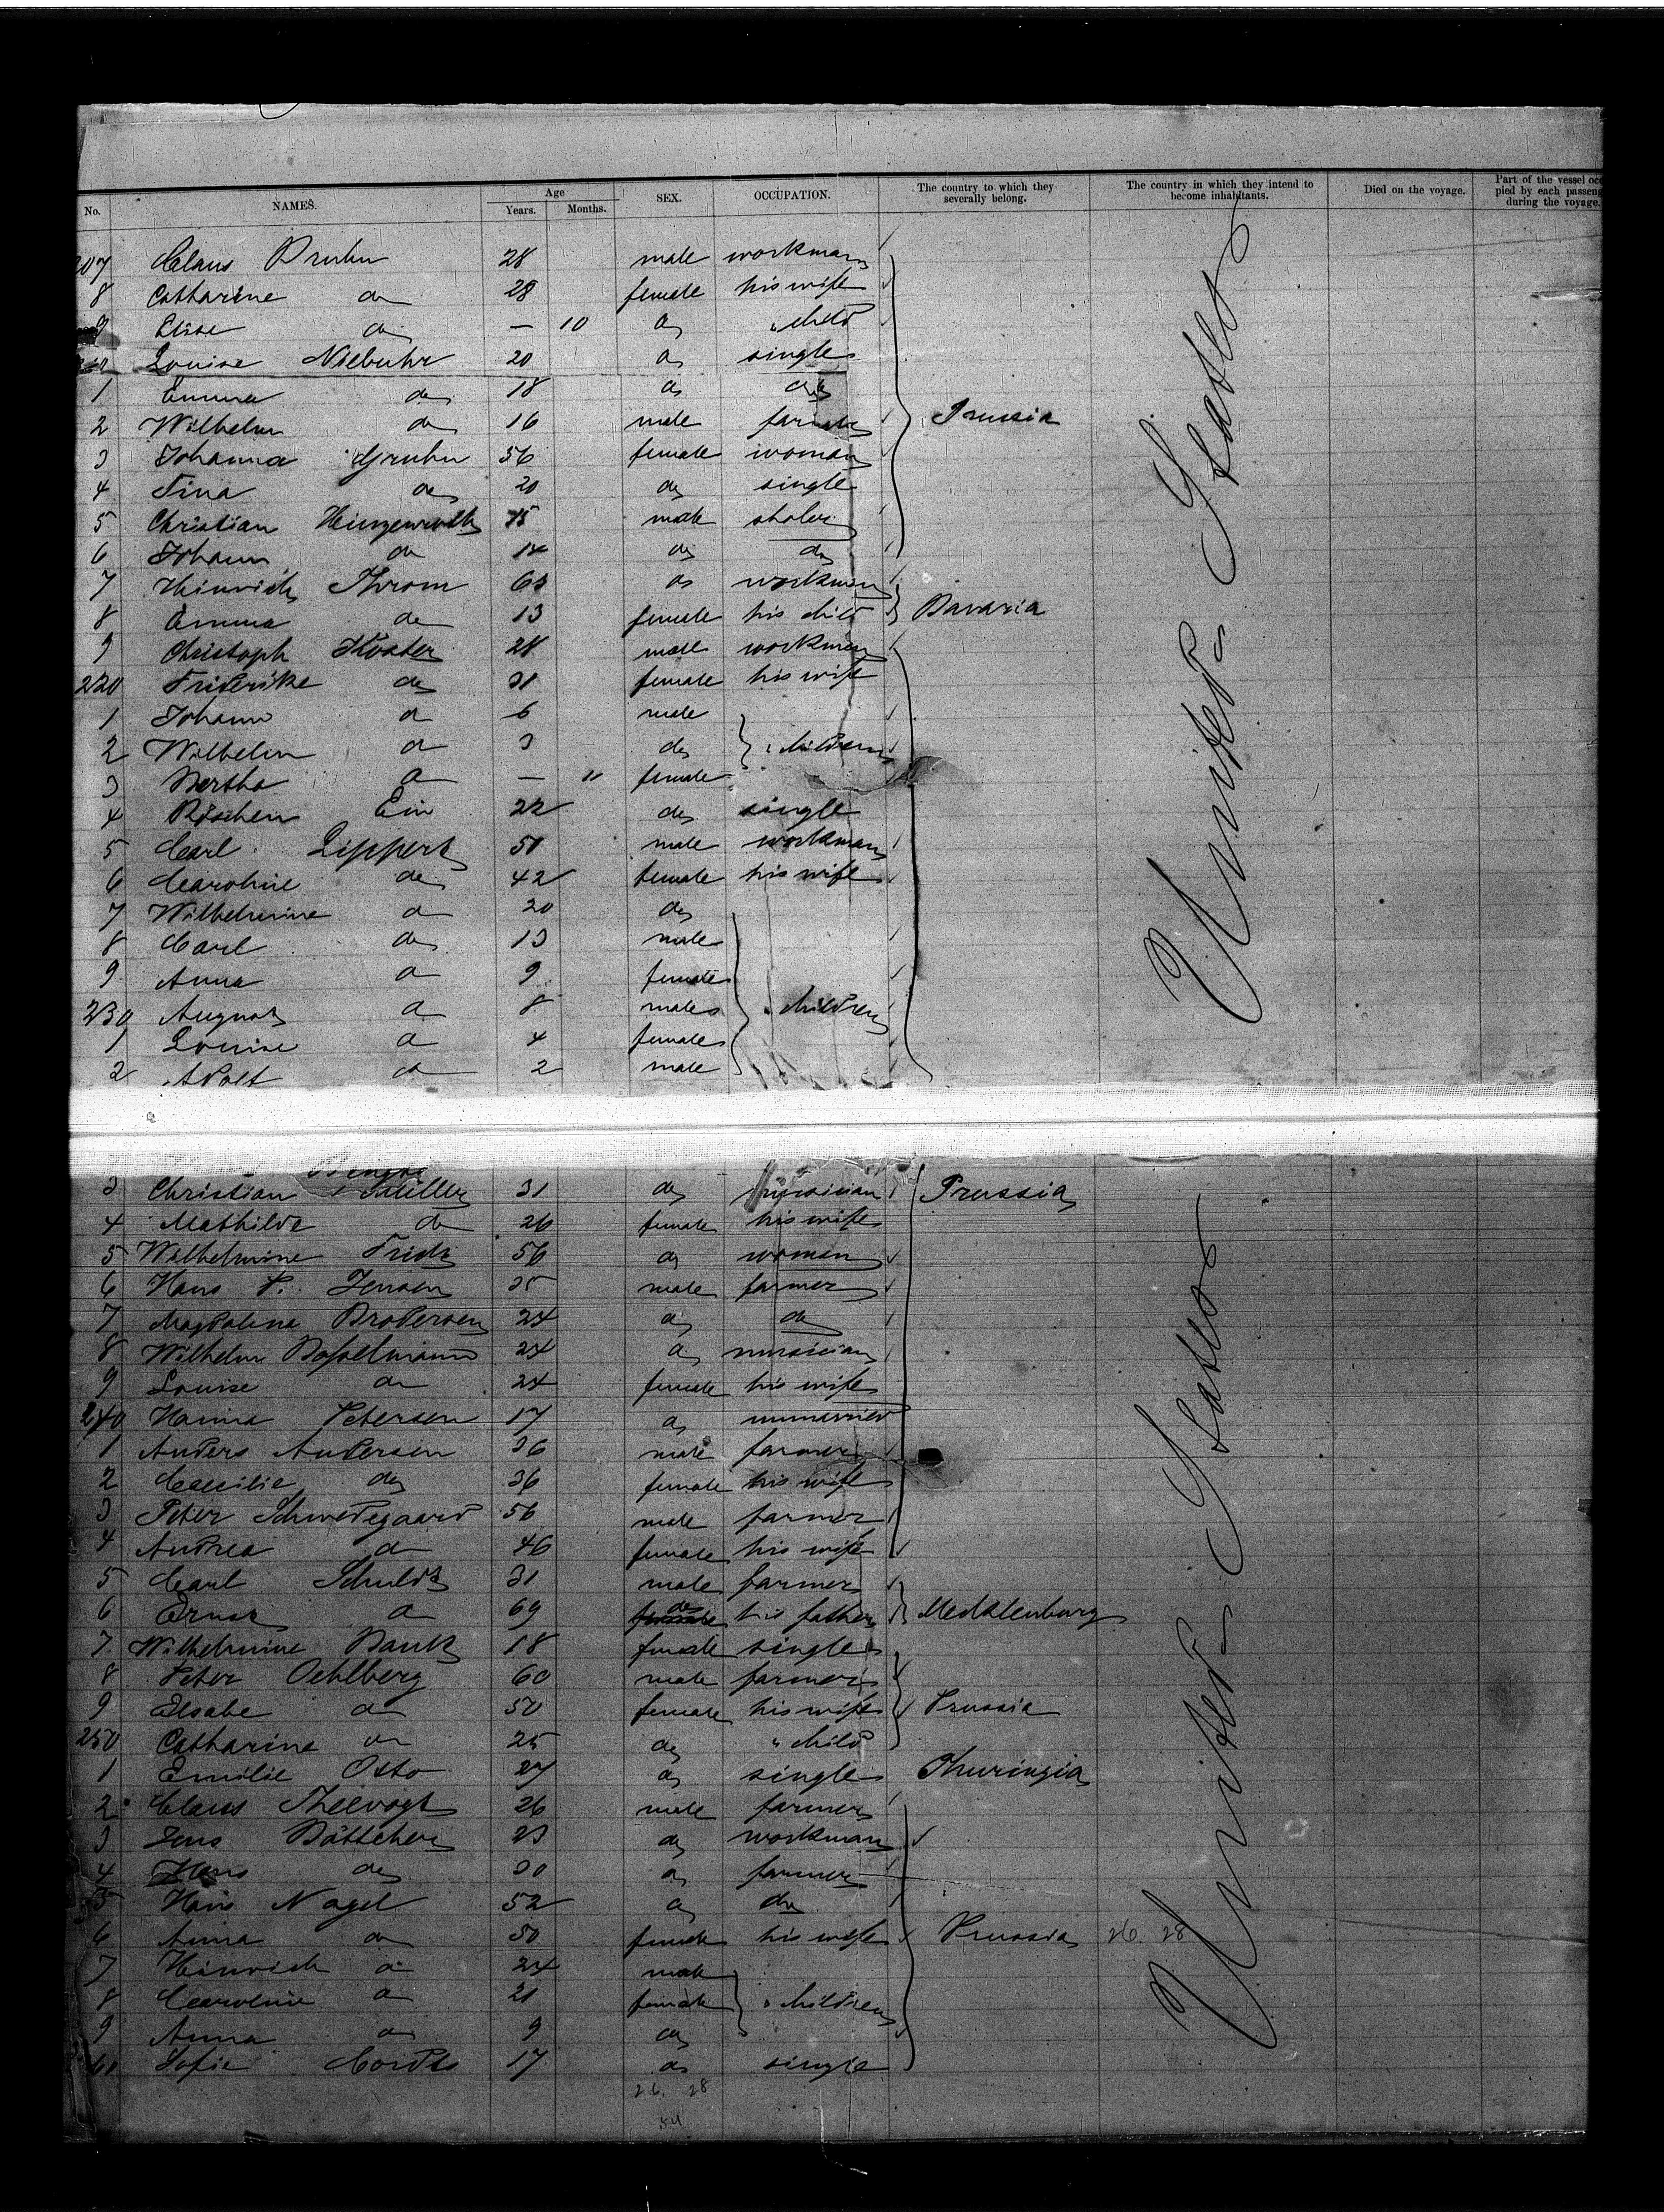 No. NAMES. Age Years. Months. SEX. OCCUPATION. The country to which they severally belong. The country in which they intend to become inhabitants. Died on the voyage. Part of the vessel occ pied by each passeng during the voyage.
207 Claus 28 male workman
8 Catharine do 28 female his wife
9 Elise do — 10 do " child
Louise Niebuhr 20 do single
1 Emma do 18 do do
2 Wilhelm do 16 male farmer Prussia
3 Johanna Gruhn 56 female woman
4 Tina do 20 do single
5 Christian 15 male
6 Johann do 14 do do
7 Heinrich Throm 63 do workman
8 Emma do 13 female his child Bavaria
9 Christoph Köster 28 male workman
220 Friderike do 31 female his wife
1 Johann do 6 male
2 Wilhelm do 3 do " children
3 Bertha do — 11 female
4 Röschen 22 do single
5 Carl Lippert 51 male workman
6 Caroline do 42 female his wife
7 Wilhelmine do 20 do
8 Carl do 13 male
9 Anna do 9 female
230 August do 8 male " children
1 Louise do 4 female
2 Adolf do 2 male
United States
3 Christian Müller 31 do musician Prussia
4 Mathilde do 26 female his wife
5 Wilhelmine 56 do woman
6 Hans P. Jensen 35 male farmer
7 Magdalena Brodersen 24 do do
8 Wilhelm Bosselmann 24 do musician
9 Louise do 24 female his wife
240 Hanna Petersen 17 do unmarried
1 Anders Andersen 36 male farmer
2 Caecilie do 36 female his wife
3 Peter Schmedegaard 56 male farmer
4 Andrea do 46 female his wife
5 Carl Schuldt 31 male farmer
6 Ernst do 69 do his father Mecklenburg
7 Wilhelmine 18 female single
8 Peter Oehlberg 60 male farmer
9 Elsabe do 50 female his wife Prussia
250 Catharine do 25 do " child
1 Emilie Otto 27 do single Thuringia
2 Claus Theevogt 26 male farmer
3 Jens Böttcher 23 do workman
4 Hans do 30 do farmer
5 Hans Nagel 52 do do
6 Anna do 50 female his wife Prussia 26. 28
7 Heinrich do 24 male
8 Caroline do 21 female " children
9 Anna do 9 do
60 Sofie Cordts 17 do single
United States
26. 28
54